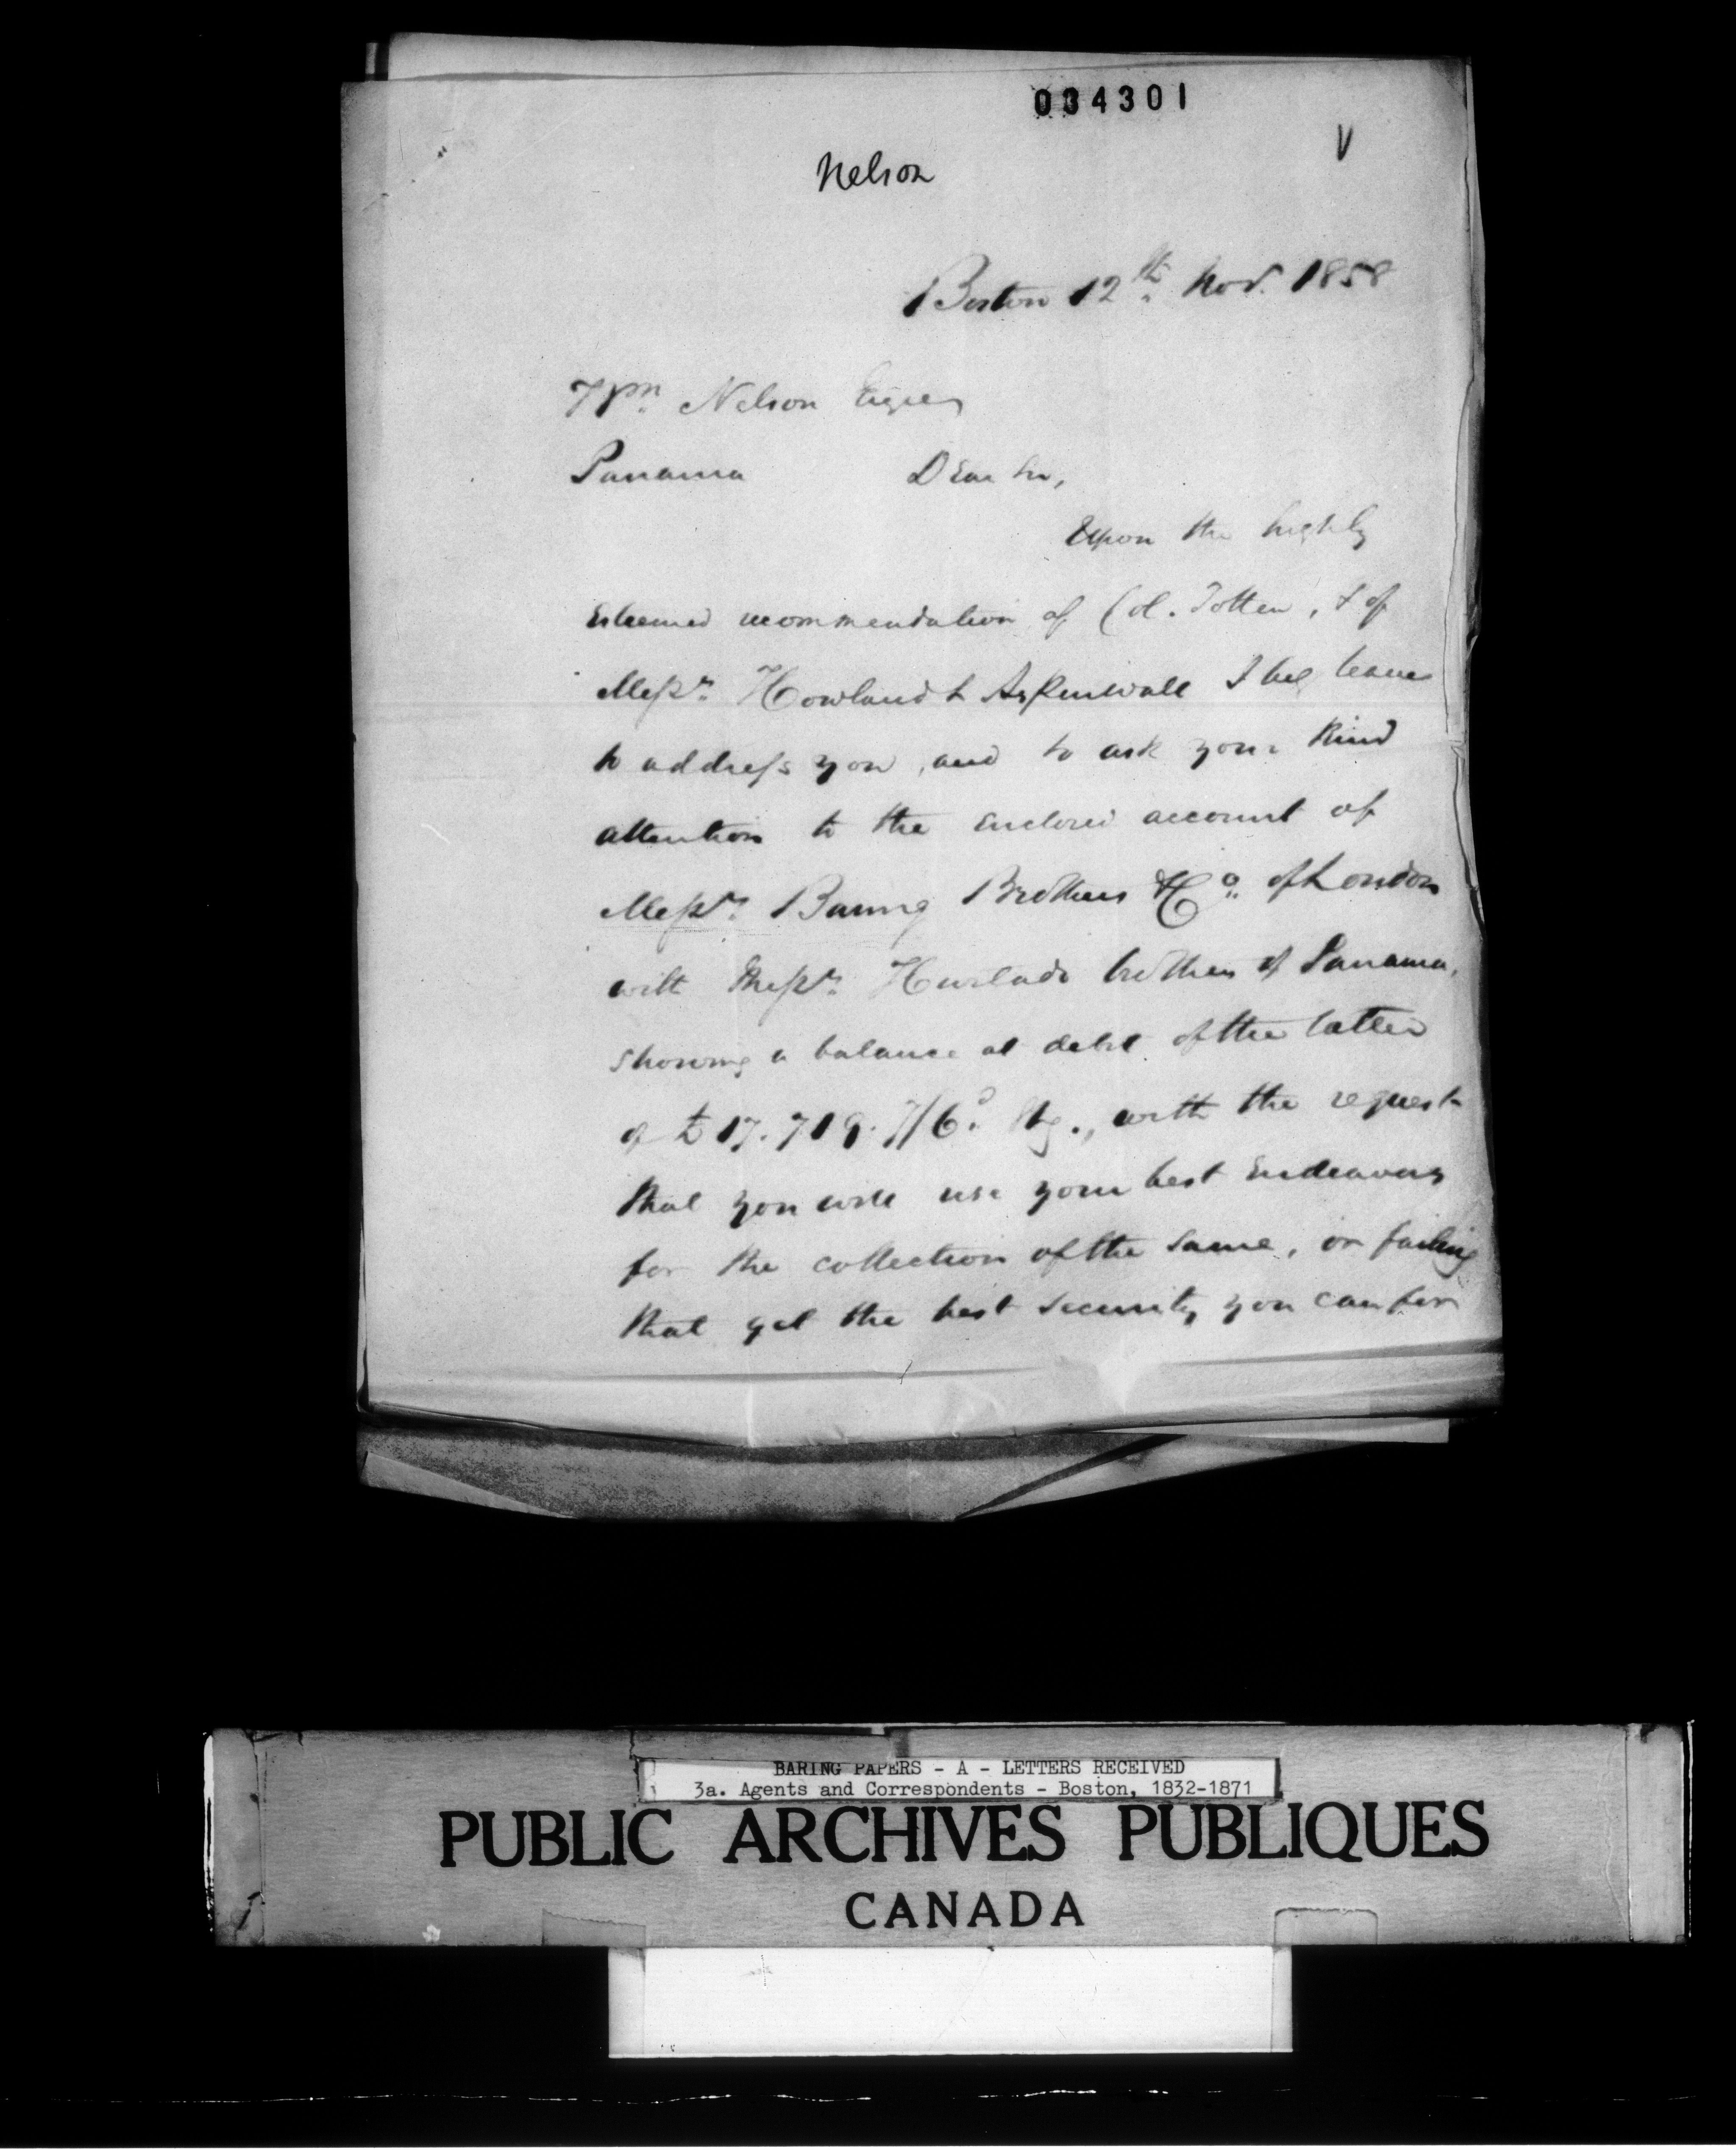 034301
V
Nelson
Boston 12th Nov. 1858
Wm. Nelson Esqre
Panama Dear Sir,
Upon the highly
esteemed recommendation of Col. Totten, & of
Messrs. Howland & Aspinwall I beg leave
to address you, and to ask your kind
attention to the enclosed account of
Messrs. Baring Brothers & Co. of London
with Messrs. Hurtado brothers of Panama,
showing a balance at debit of the latter
of £17.719. 7/6d. Stg., with the request
that you will use your best endeavors
for the collection of the same, or failing
that get the best security you can for
BARING PAPERS - A - LETTERS RECEIVED
3a. Agents and Correspondents - Boston, 1832-1871
PUBLIC ARCHIVES PUBLIQUES
CANADA